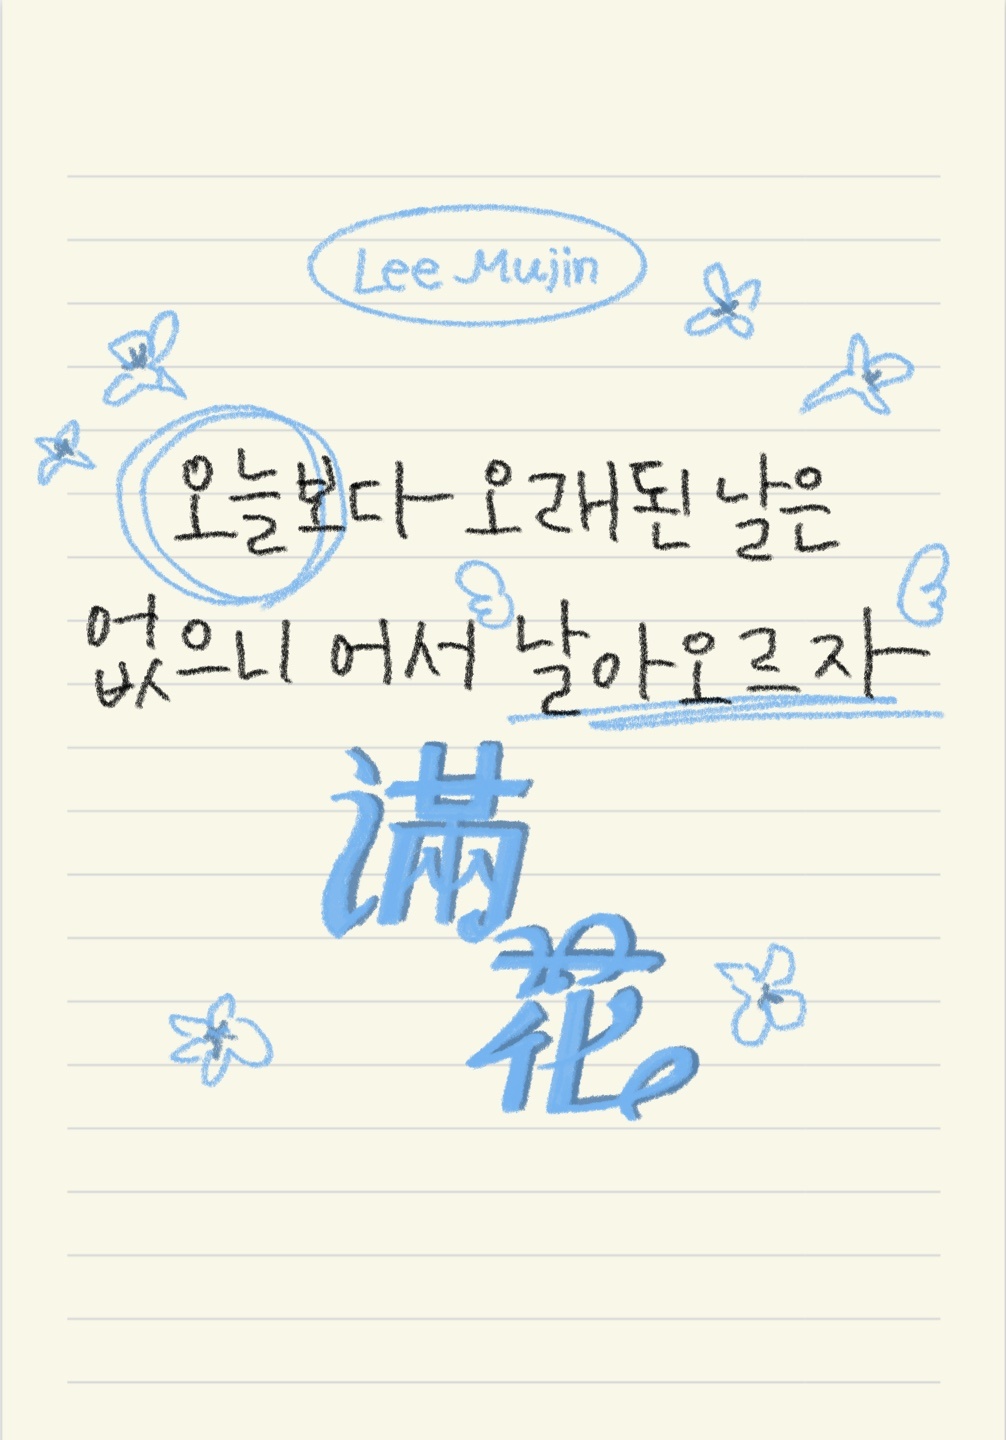 Lee Mujin
오늘보다 오래된 날은
없으니 어서 날아오르자
滿
花